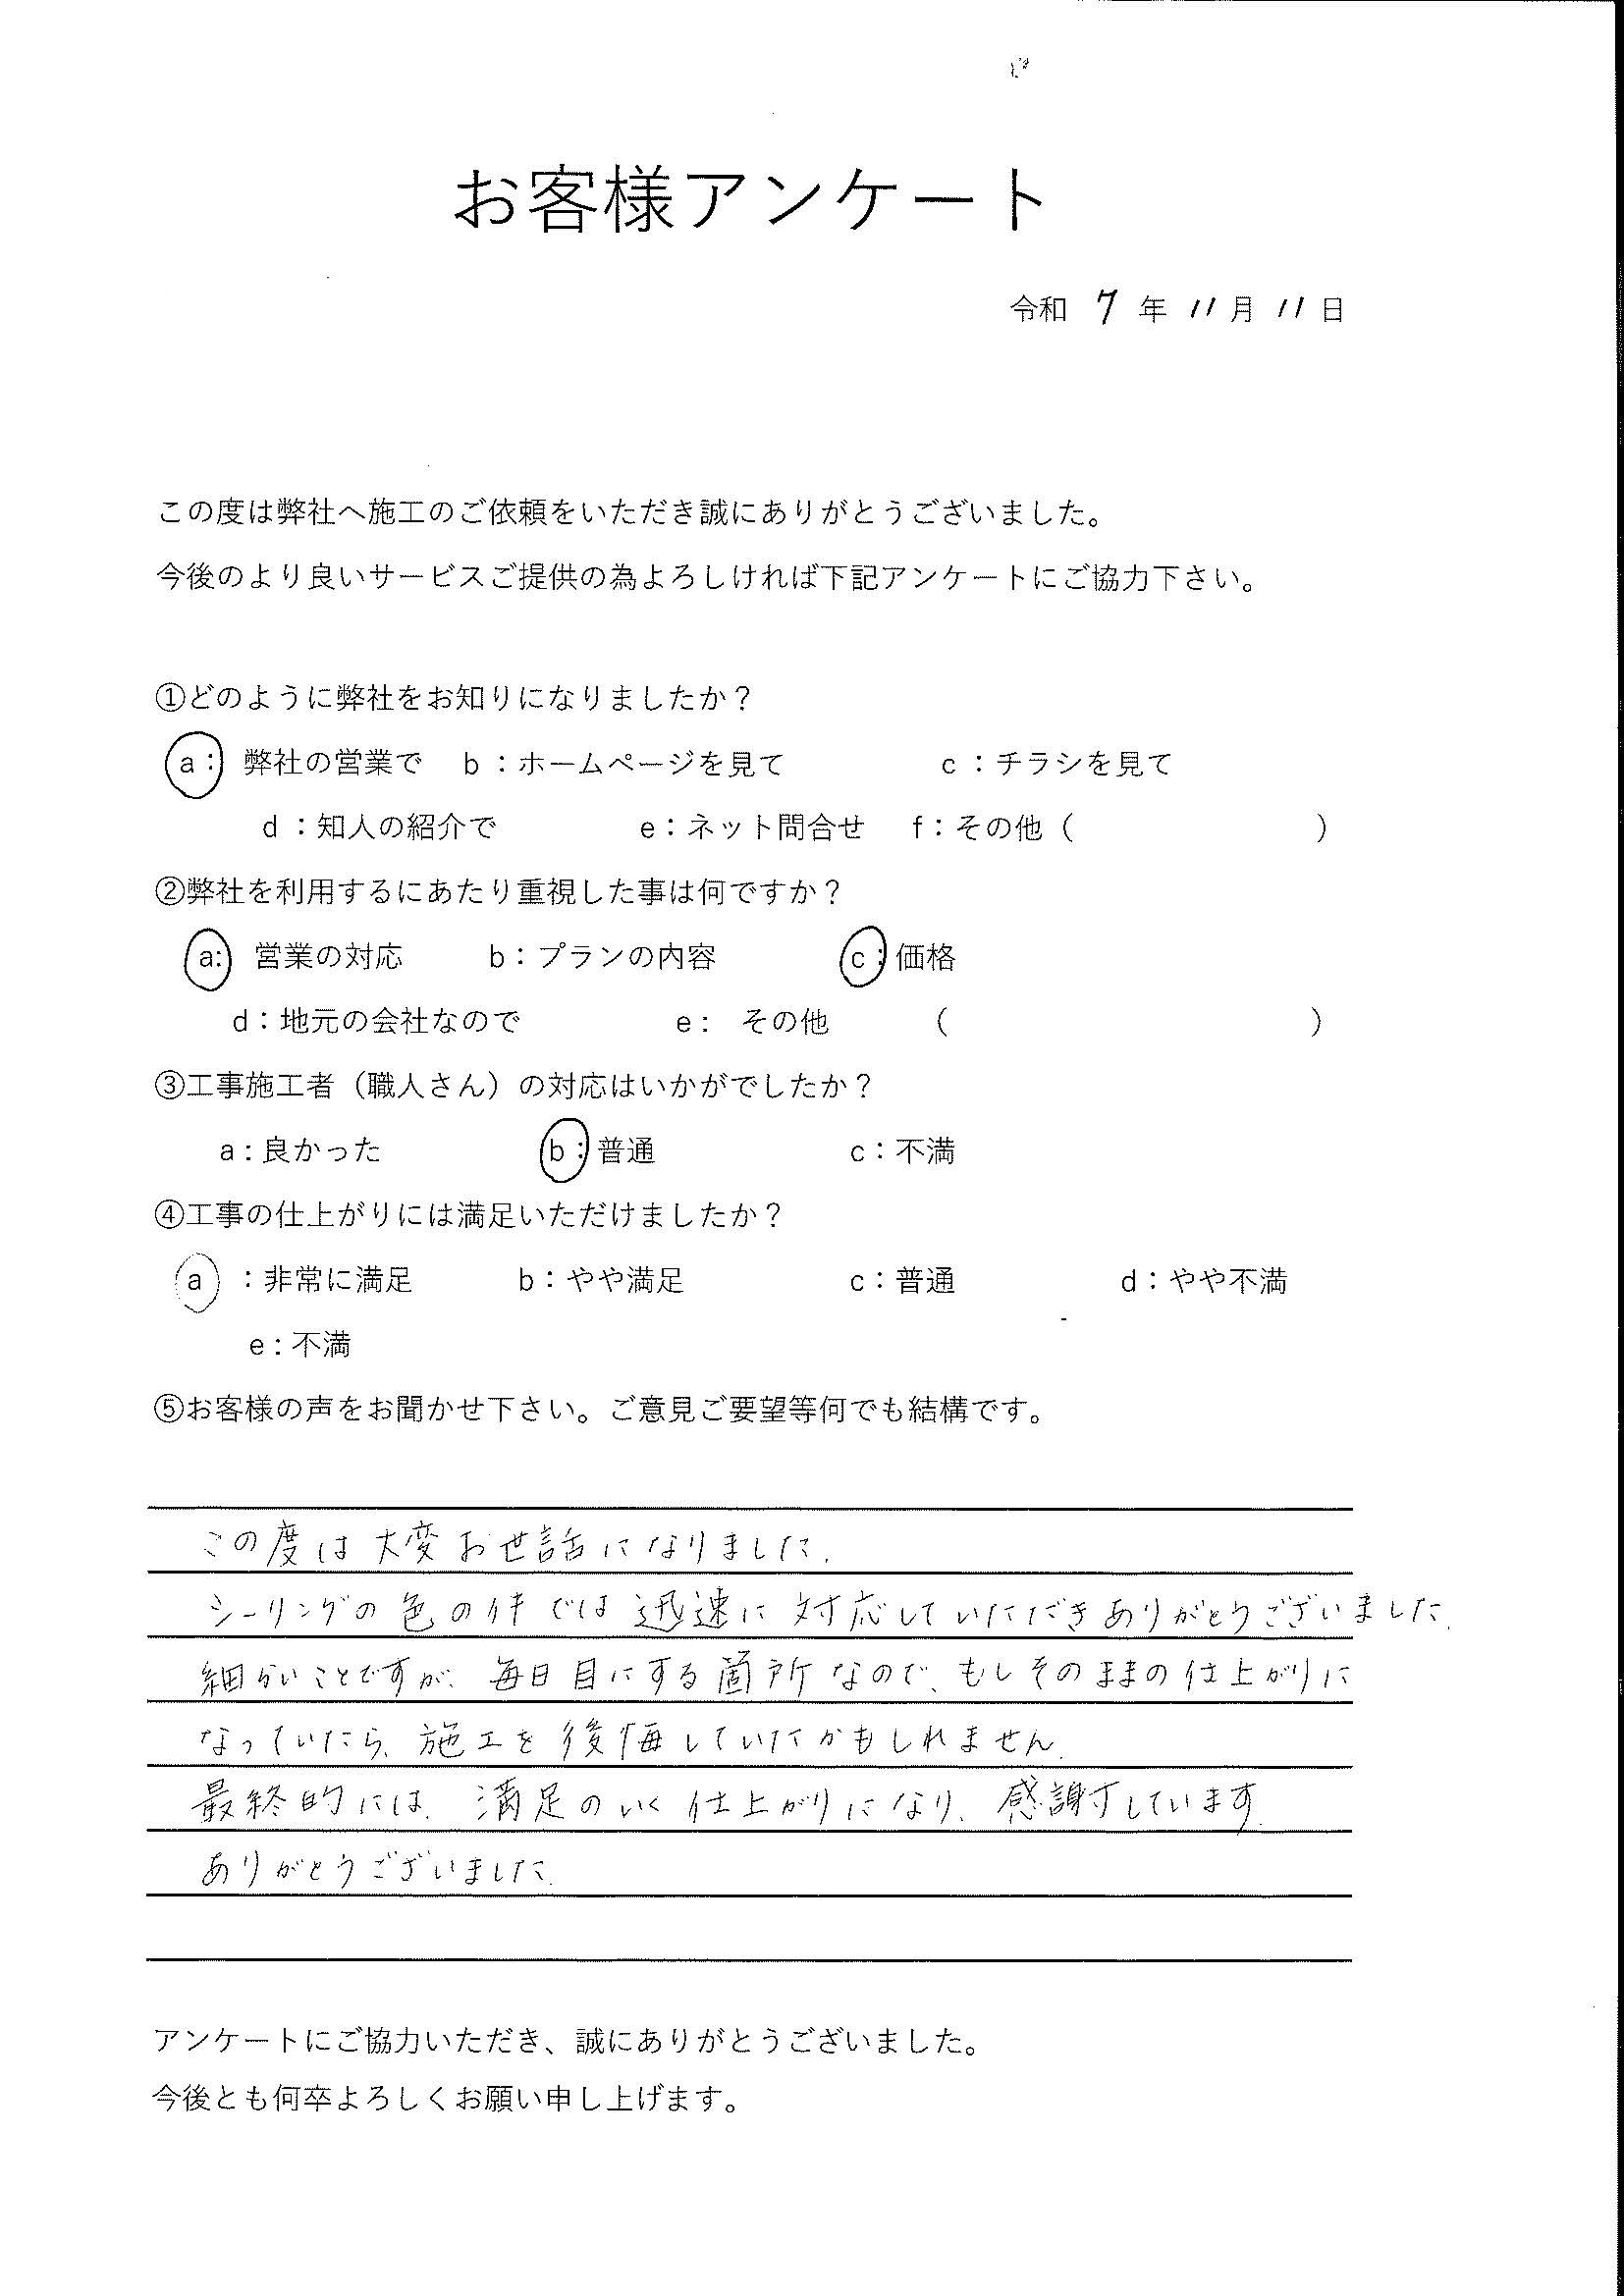 お客様アンケート
令和 7 年 11 月 11 日
この度は弊社へ施工のご依頼をいただき誠にありがとうございました。
今後のより良いサービスご提供の為よろしければ下記アンケートにご協力下さい。
①どのように弊社をお知りになりましたか？
a： 弊社の営業で b：ホームページを見て c：チラシを見て
d：知人の紹介で e：ネット問合せ f：その他（ ）
②弊社を利用するにあたり重視した事は何ですか？
a: 営業の対応 b：プランの内容 c：価格
d：地元の会社なので e： その他 （ ）
③工事施工者（職人さん）の対応はいかがでしたか？
a：良かった b：普通 c：不満
④工事の仕上がりには満足いただけましたか？
a ：非常に満足 b：やや満足 c：普通 d：やや不満
e：不満
⑤お客様の声をお聞かせ下さい。ご意見ご要望等何でも結構です。
この度は大変お世話になりました.
シーリングの色の件では迅速に対応していただきありがとうございました.
細かいことですが、毎日目にする箇所なので、もしそのままの仕上がりに
なっていたら、施工を後悔していたかもしれません.
最終的には、満足のいく仕上がりになり、感謝しています.
ありがとうございました.
アンケートにご協力いただき、誠にありがとうございました。
今後とも何卒よろしくお願い申し上げます。